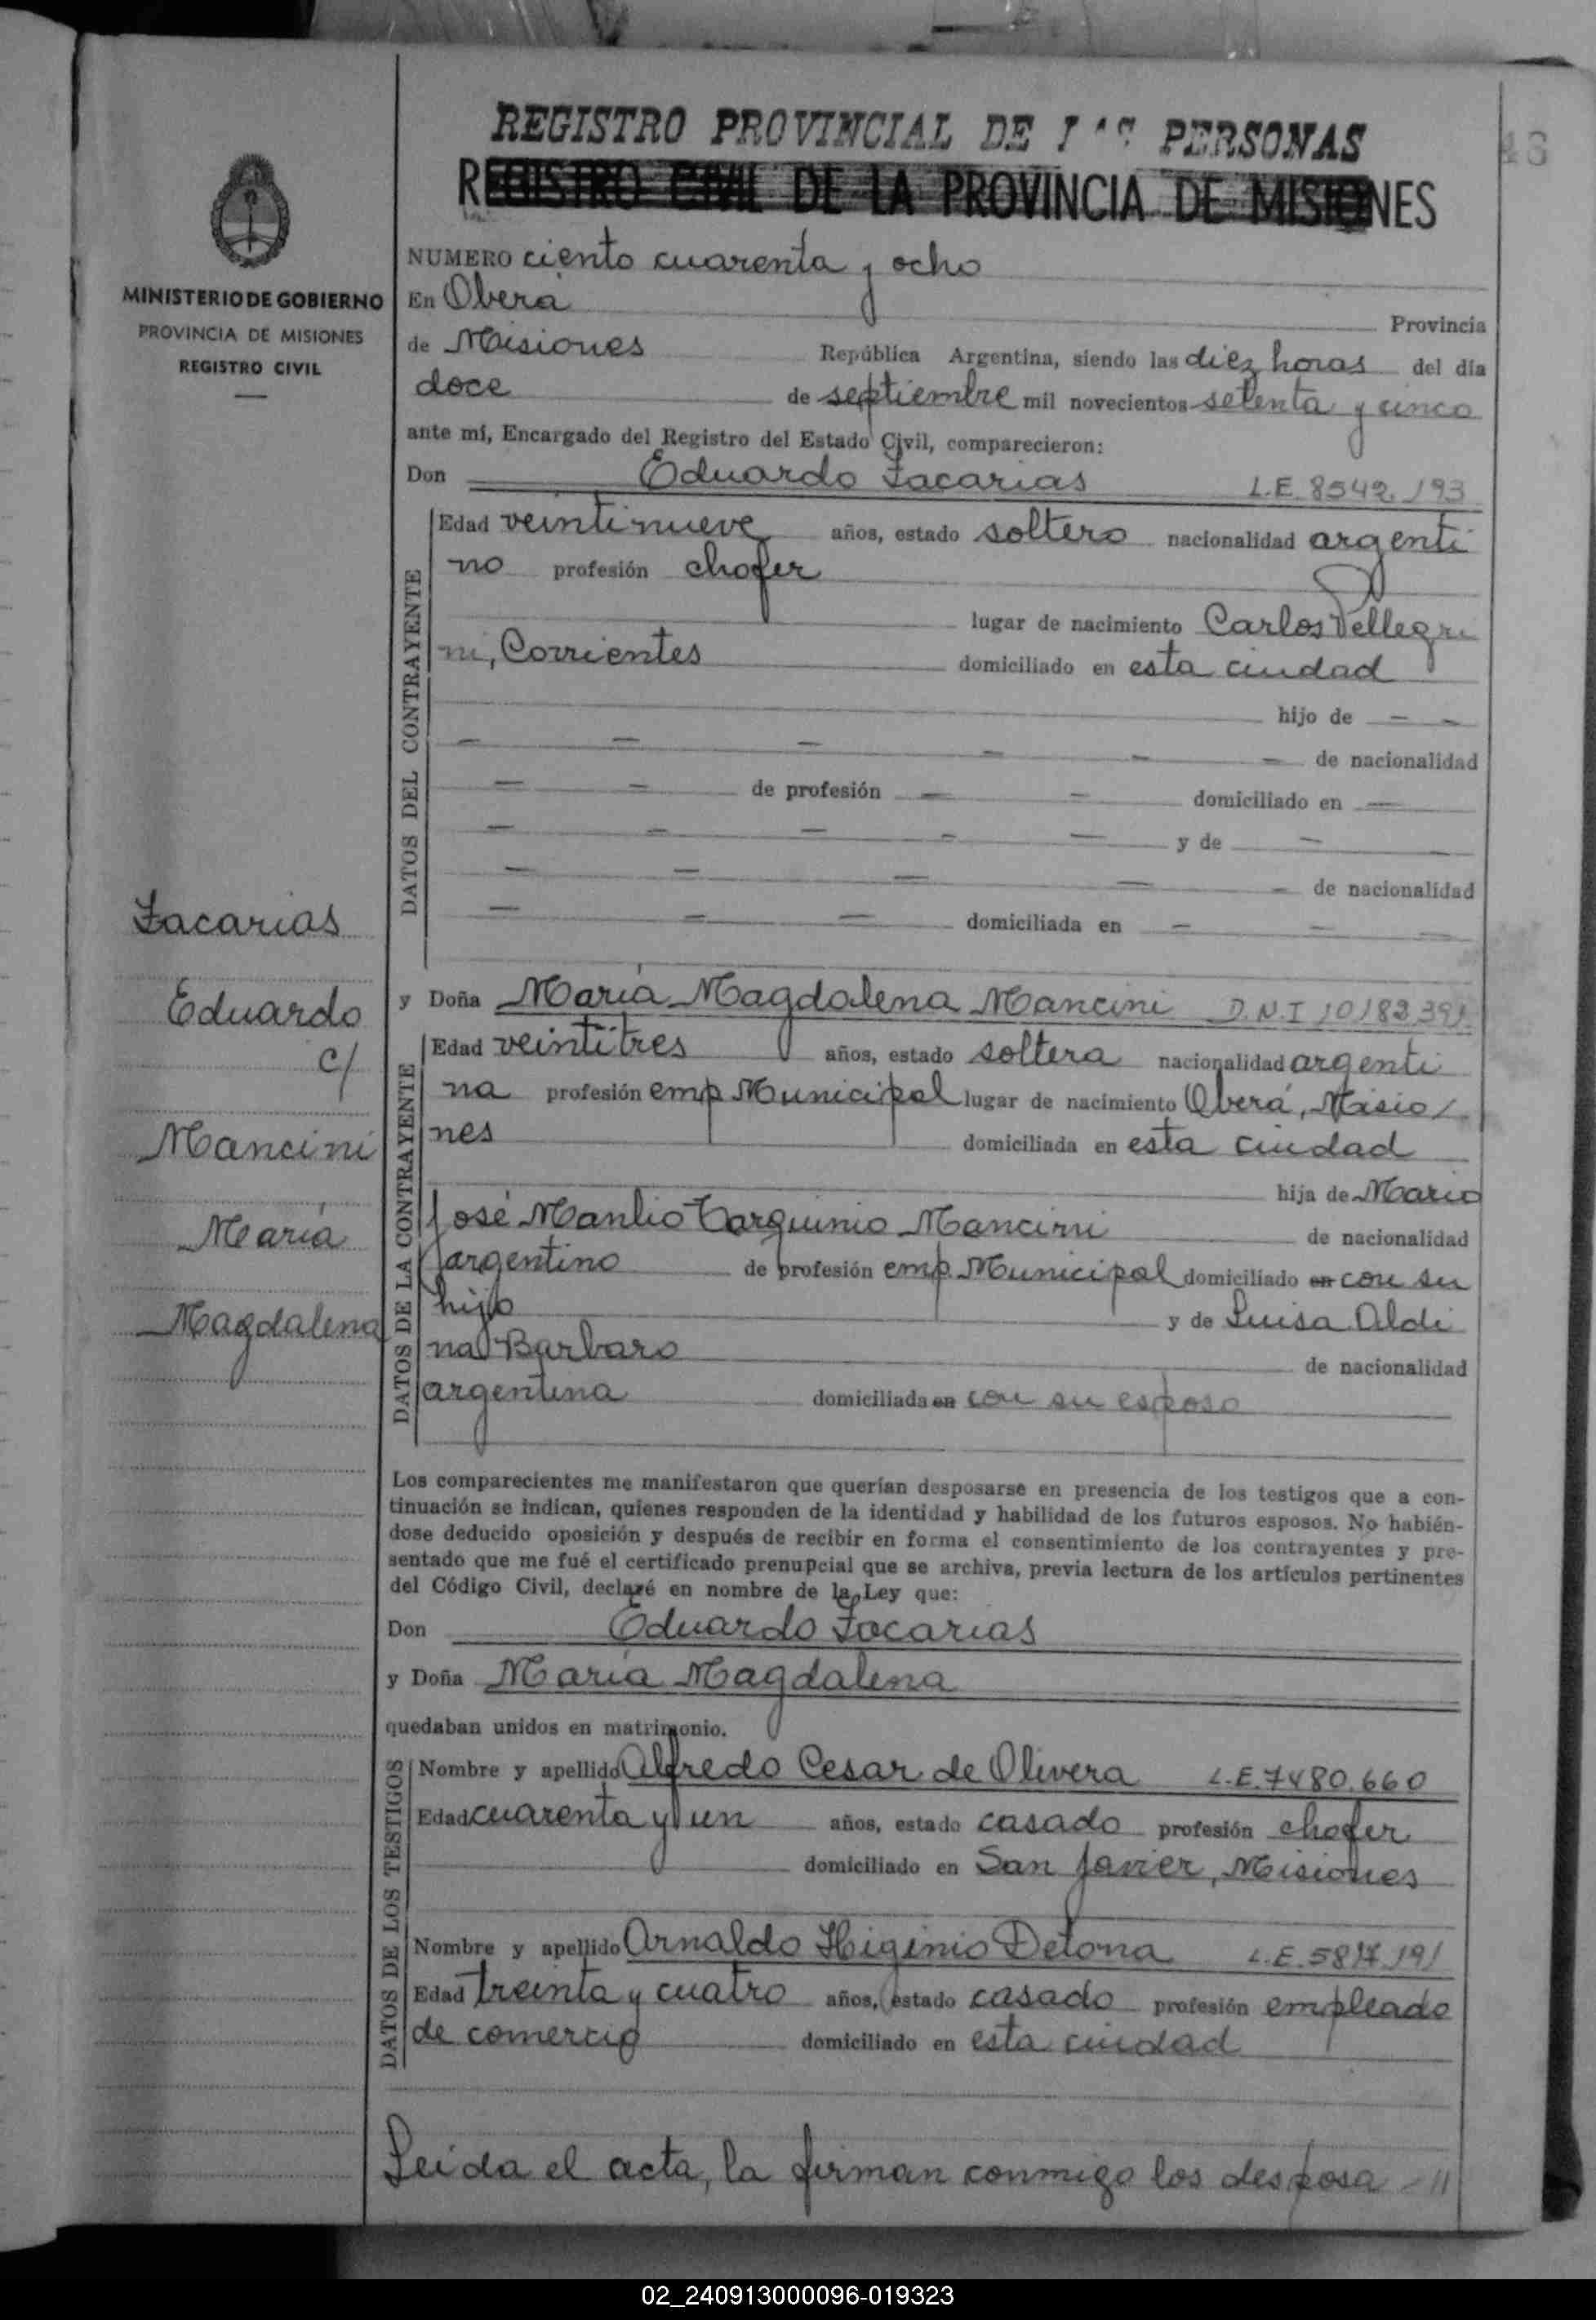 REGISTRO PROVINCIAL DE PERSONAS
REGISTRO CIVIL DE LA PROVINCIA DE MISIONES
MINISTERIO DE GOBIERNO
PROVINCIA DE MISIONES
REGISTRO CIVIL
NUMERO ciento cuarenta y ocho
En Oberá Provincia
de Misiones República Argentina, siendo las diez horas del día
doce de septiembre mil novecientos setenta y cinco
ante mí, Encargado del Registro del Estado Civil, comparecieron:
Don Eduardo Zacarias L.E. 8542.193
DATOS DEL CONTRAYENTE
Edad veintinueve años, estado soltero nacionalidad argenti
no profesión chofer
lugar de nacimiento Carlos Pellegri
ni, Corrientes domiciliado en esta ciudad
hijo de — —
— — — — — — de nacionalidad
— — de profesión — — domiciliado en —
— — — — — y de — —
— — — — — de nacionalidad
— — — domiciliada en — — —
Zacarias
Eduardo
c/
Mancini
María
Magdalena
y Doña María Magdalena Mancini D.N.I 10182391
DATOS DE LA CONTRAYENTE
Edad veintitres años, estado soltera nacionalidad argenti
na profesión emp Municipal lugar de nacimiento Oberá, Misio/
nes domiciliada en esta ciudad
hija de Mario
José Manlio Tarquinio Mancini de nacionalidad
argentino de profesión emp. Municipal domiciliado en con su
hijo y de Luisa Aldi
na Barbaro de nacionalidad
argentina domiciliada en con su esposo
Los comparecientes me manifestaron que querían desposarse en presencia de los testigos que a con-
tinuación se indican, quienes responden de la identidad y habilidad de los futuros esposos. No habién-
dose deducido oposición y después de recibir en forma el consentimiento de los contrayentes y pre-
sentado que me fué el certificado prenupcial que se archiva, previa lectura de los artículos pertinentes
del Código Civil, declaré en nombre de la Ley que:
Don Eduardo Zacarias
y Doña María Magdalena
quedaban unidos en matrimonio.
DATOS DE LOS TESTIGOS
Nombre y apellido Alfredo Cesar de Olivera L.E. 7480.660
Edad cuarenta y un años, estado casado profesión chofer
domiciliado en San Javier, Misiones
Nombre y apellido Arnaldo Higinio Detona L.E.
Edad treinta y cuatro años, estado casado profesión empleado
de comercio domiciliado en esta ciudad
Leida el acta, la firman conmigo los desposa -//
02_240913000096-019323